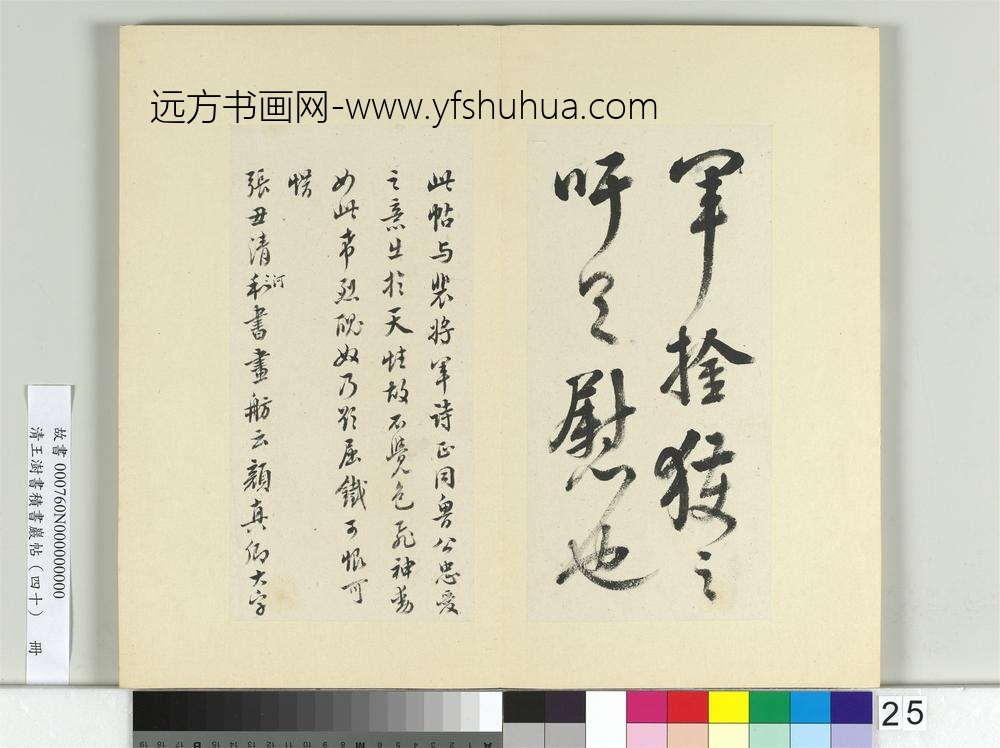 远方书画网-www.yfshuhua.com
軍捨獲之
吁足慰也
此帖与裴将軍诗正同魯公忠爱
之意出於天性故不觉色飛神動
如此希烈醜奴乃欲屈鐵可恨可
惜
張丑清河
秘書畫舫云顏真卿大字
故書 000760N000000000
清王澍書積書巖帖（四十） 冊
25